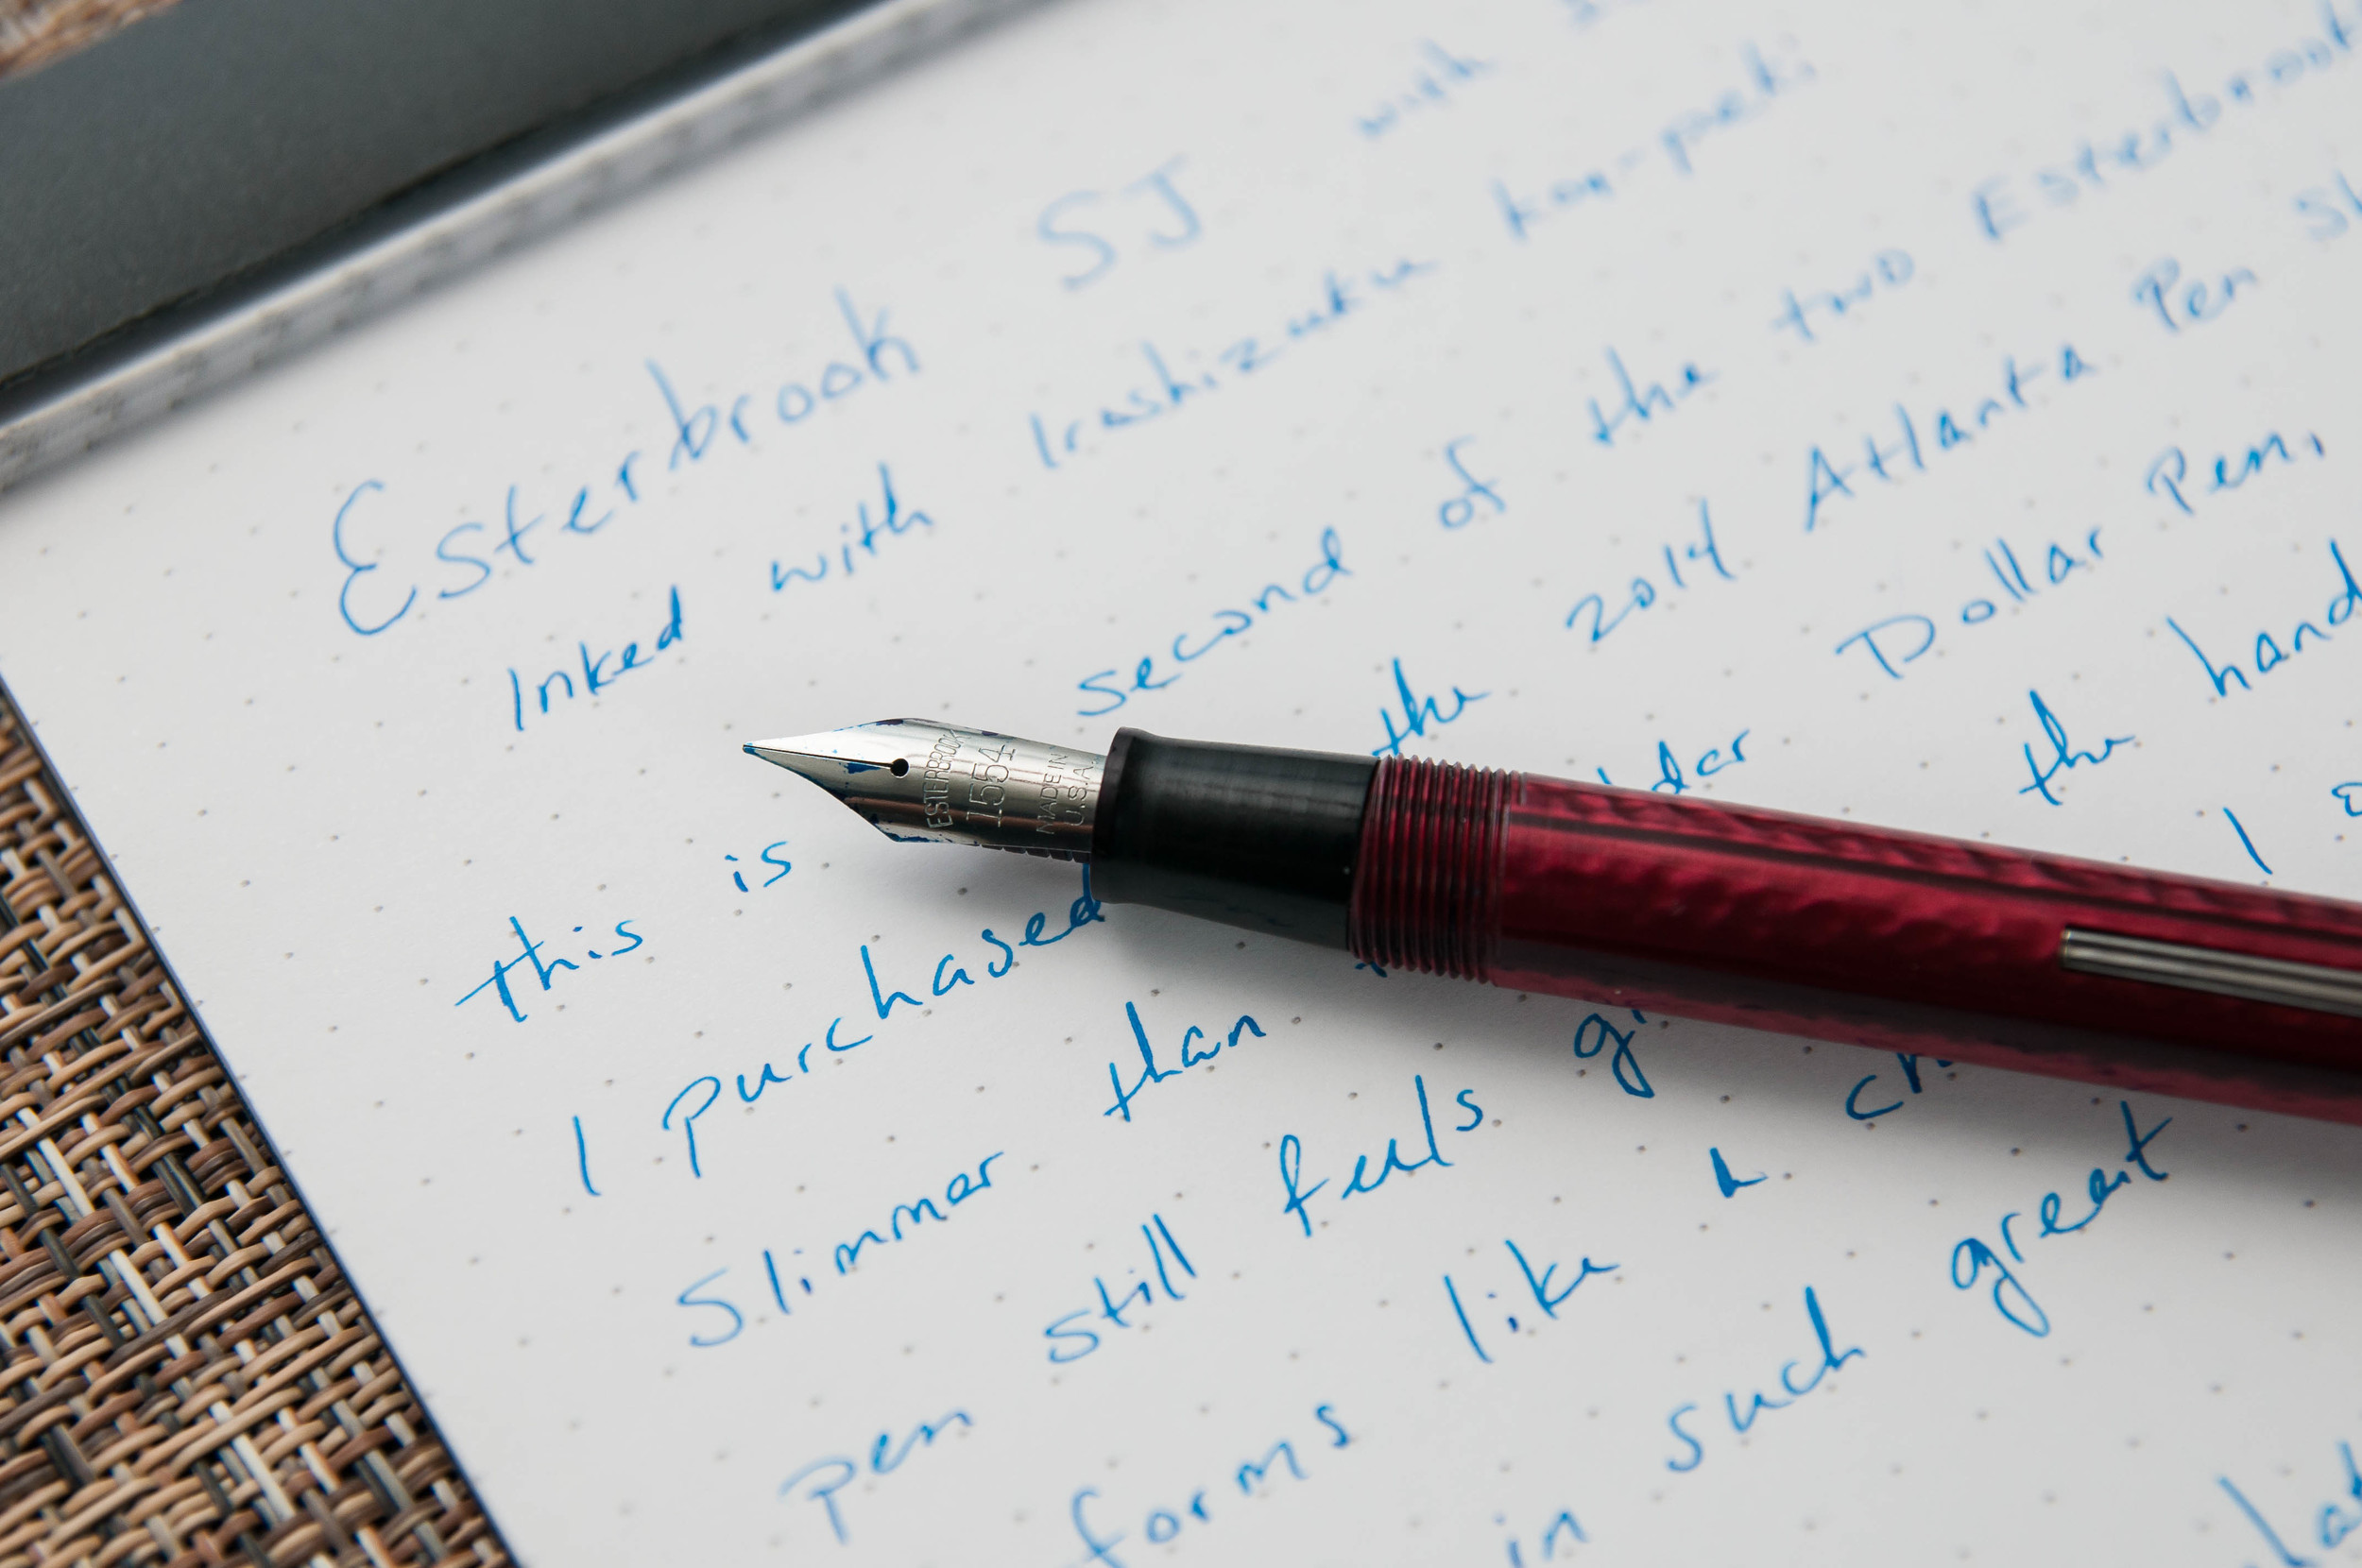 Esterbrook SJ with
Inked with Iroshizuku kon-peki
this is second of the two Esterbrook
I purchased the 2014 Atlanta Pen
Slimmer than Dollar Pen,
pen still feels the hand
forms like a I
in such great
ESTERBROOK
1554
MADE IN
U.S.A.